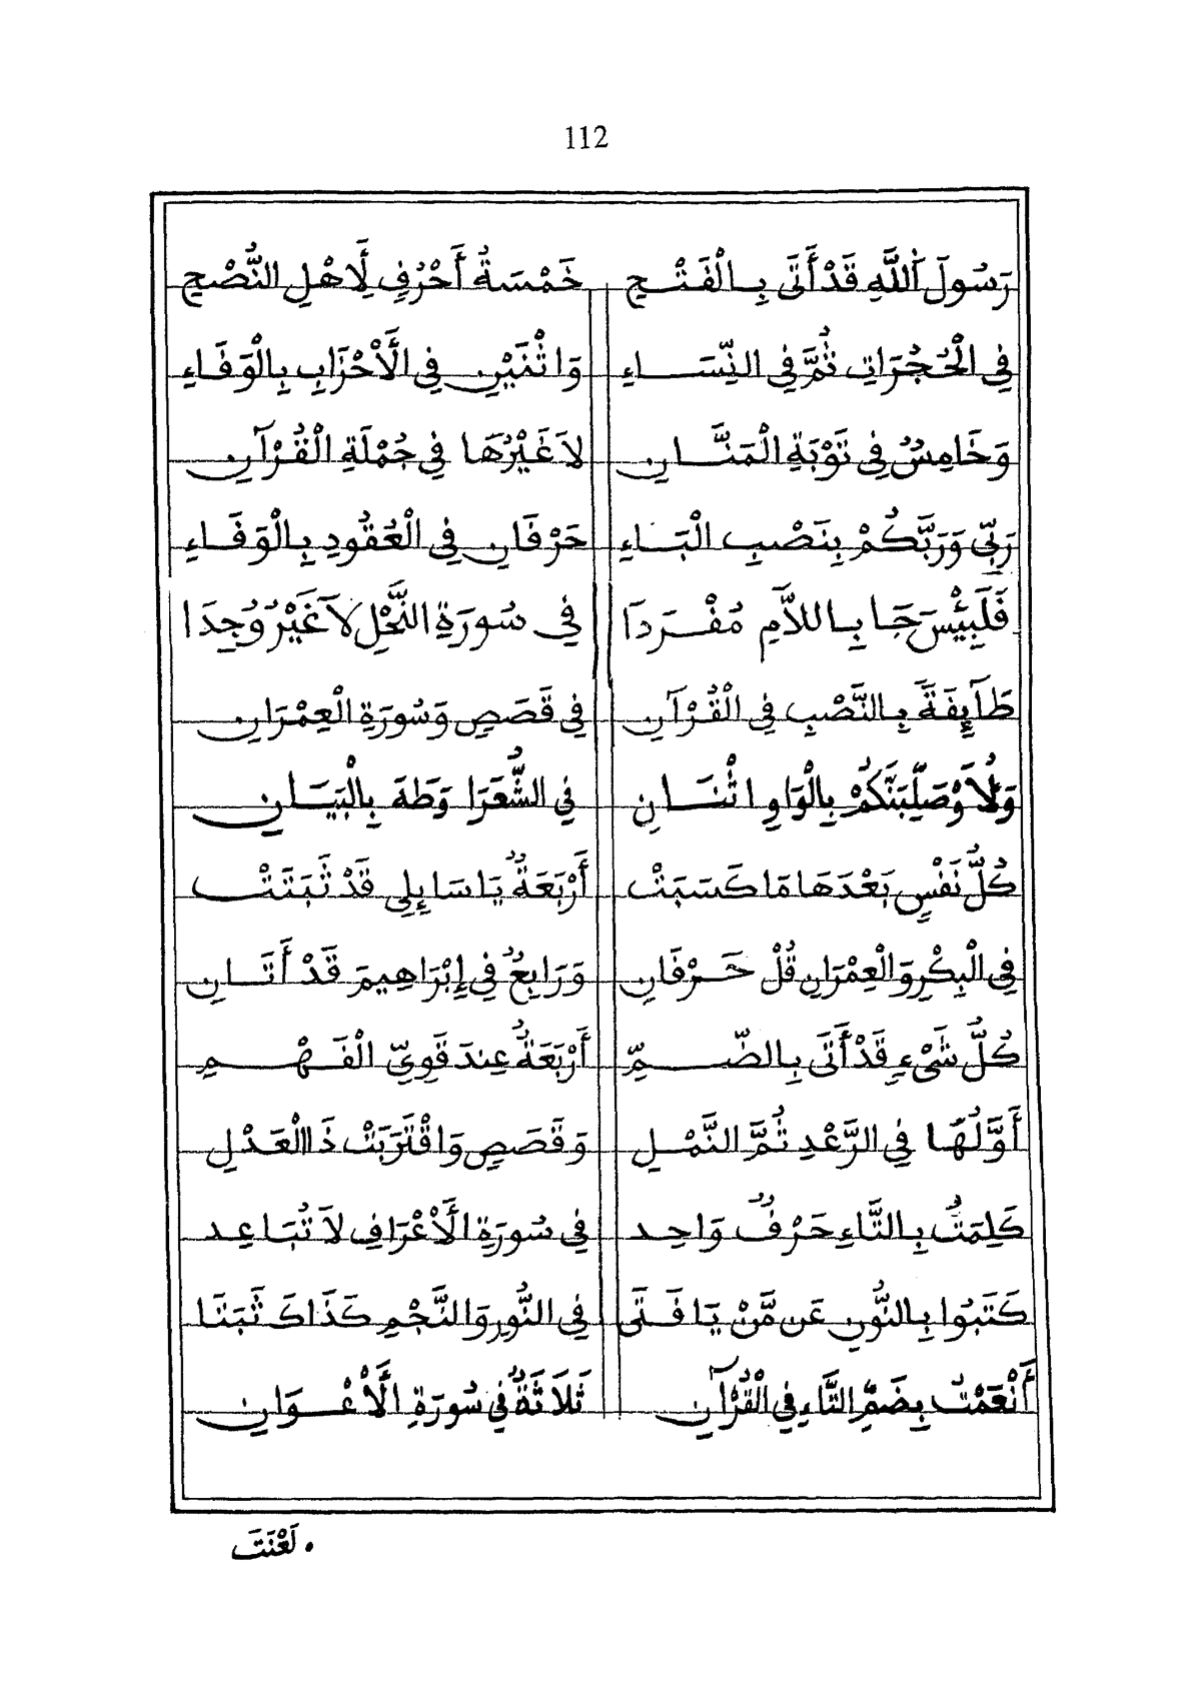 112
رَسُولَ اللَّهِ قَدْ أَتَى بِالْفَتْحِ خَمْسَةُ أَحْرُفٍ لِأَهْلِ النُّصْحِ
فِي الْحُجُرَاتِ ثُمَّ فِي النِّسَاءِ وَاثْنَيْنِ فِي الْأَحْزَابِ بِالْوَفَاءِ
وَخَامِسٌ فِي تَوْبَةِ الْمَنَّانِ لَا غَيْرُهَا فِي جُمْلَةِ الْقُرْآنِ
رَبِّي وَرَبَّكُمْ بِنَصْبِ الْبَاءِ حَرْفَانِ فِي الْعُقُودِ بِالْوَفَاءِ
فَلَبِئْسَ جَا بِاللَّامِ مُفْرَدَا فِي سُورَةِ النَّحْلِ لَا غَيْرُ وُجِدَا
طَآئِفَةً بِالنَّصْبِ فِي الْقُرْآنِ فِي قَصَصٍ وَسُورَةِ الْعِمْرَانِ
وَلَأُوصَلِّبَنَّكُمْ بِالْوَاوِ اثْنَانِ فِي الشُّعَرَا وَطَهَ بِالْبَيَانِ
كُلُّ نَفْسٍ بَعْدَهَا مَا كَسَبَتْ أَرْبَعَةٌ يَا سَائِلِي قَدْ ثَبَتَتْ
فِي الْبِكْرِ وَالْعِمْرَانِ قُلْ حَرْفَانِ وَرَابِعٌ فِي إِبْرَاهِيمَ قَدْ أَتَانِ
كُلُّ شَيْءٍ قَدْ أَتَى بِالضَّمِّ أَرْبَعَةٌ عِندَ قَوِيِّ الْفَهْمِ
أَوَّلُهَا فِي الرَّعْدِ ثُمَّ النَّمْلِ وَقَصَصٍ وَاقْتَرَبَتْ ذَا الْعَدْلِ
كَلِمَتُ بِالتَّاءِ حَرْفٌ وَاحِد فِي سُورَةِ الْأَعْرَافِ لَا تُبَاعِد
كَتَبُوا بِالنُّونِ عَن مَّنْ يَا فَتَى فِي النُّورِ وَالنَّجْمِ كَذَاكَ ثَبَتَا
أَنْعَمْتُ بِضَمِّ التَّاءِ فِي الْقُرْآنِ ثَلَاثَةٌ فِي سُورَةِ الْأَعْوَانِ
• لَعْنَتَ